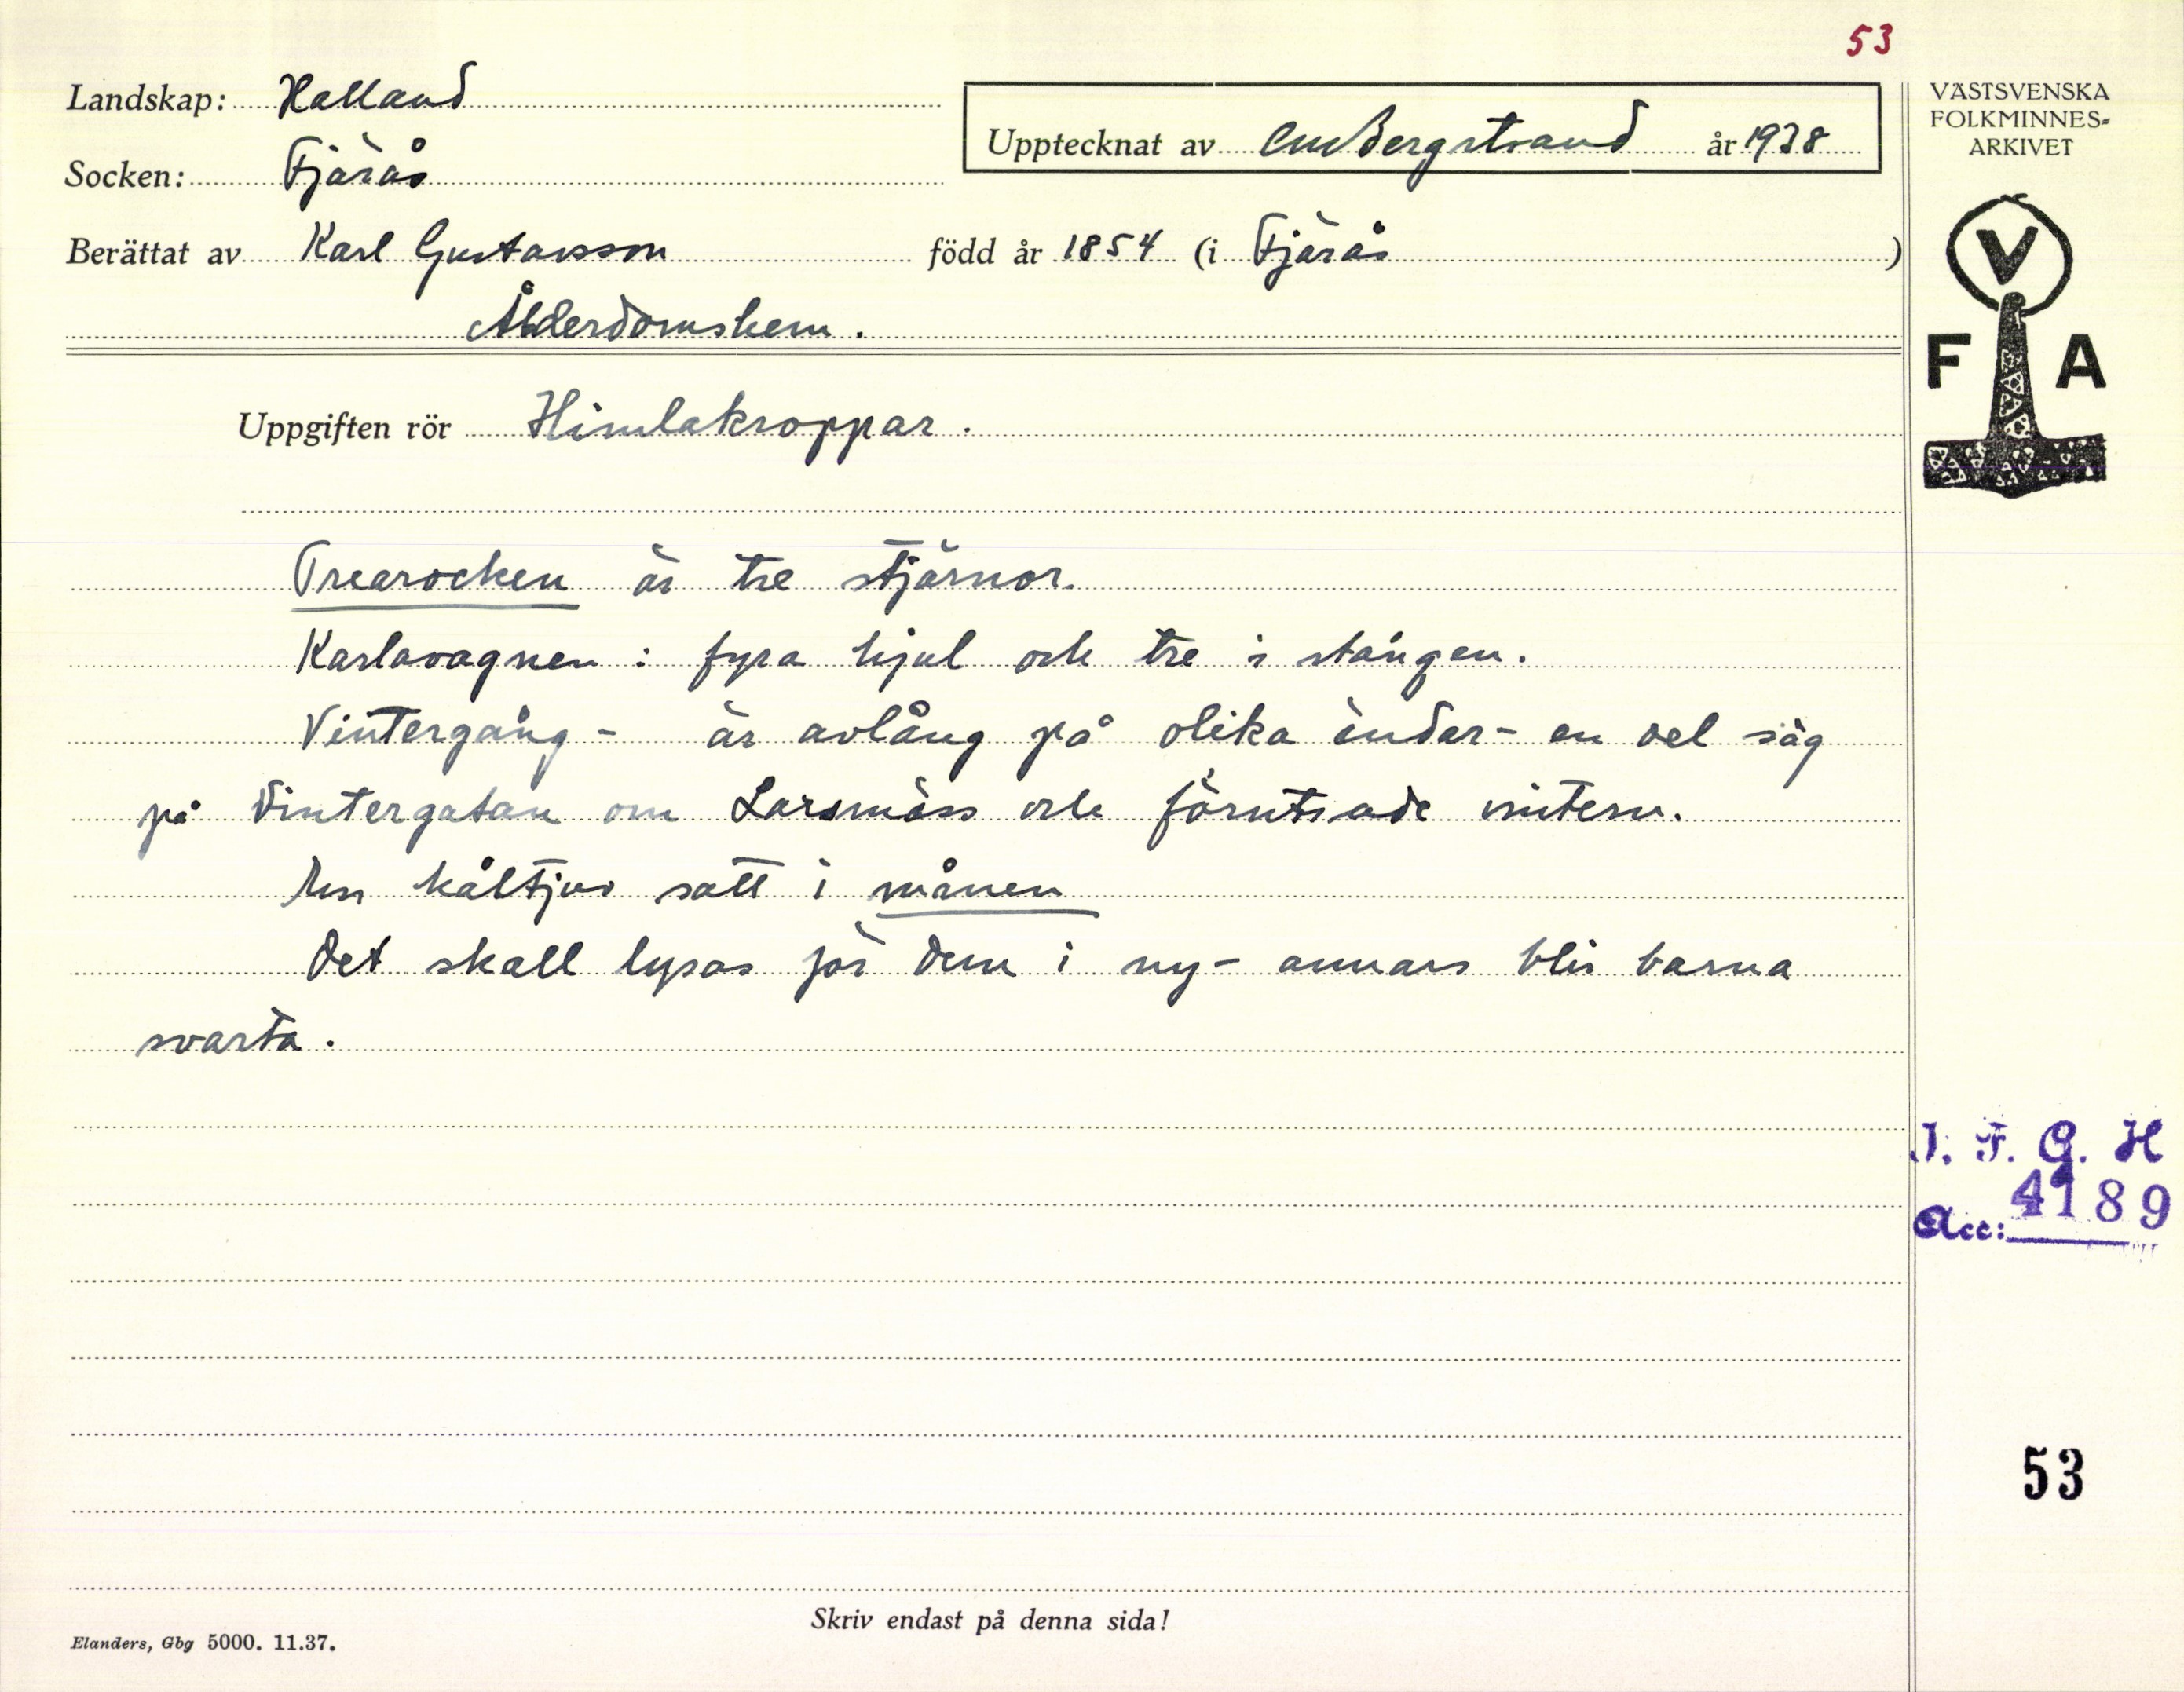 53
Landskap: Halland
Socken: Fjärås
Upptecknat av CMBergstrand år 1938
Berättat av Karl Gustavsson född år 1854 (i Fjärås)
Ålderdomshem.
VÄSTSVENSKA
FOLKMINNES-
ARKIVET
V
F A
Uppgiften rör Himlakroppar.
Trearocken är tre stjärnor.
Karlavagnen: fyra hjul och tre i stången.
Vintergång - är avlång på olika ändar - en del såg
på Vintergatan om Larsmäss och förutsade vintern.
En kåltjuv satt i månen
Det skall lysas för dem i ny - annars blir barna
svarta.
I. F. G. H
Acc: 4189
53
Skriv endast på denna sida!
Elanders, Gbg 5000. 11.37.